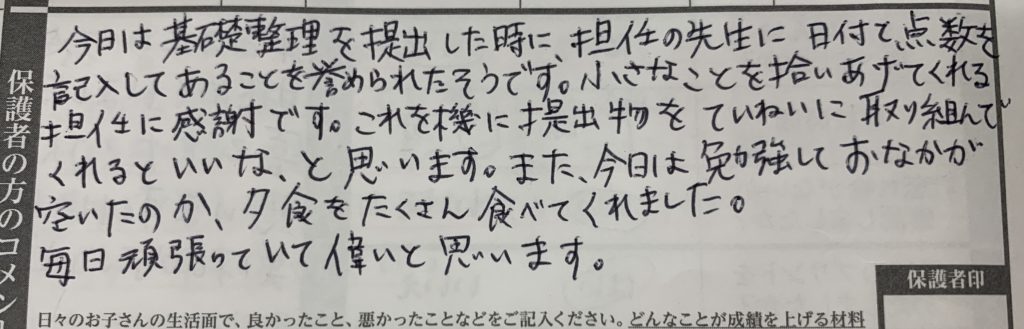 今日は基礎整理を提出した時に、担任の先生に日付と点数を
記入してあることを誉められたそうです。小さなことを拾いあげてくれる
担任に感謝です。これを機に提出物をていねいに取り組んで
くれるといいな、と思います。また、今日は勉強しておなかが
空いたのか、夕食をたくさん食べてくれました。
毎日頑張っていて偉いと思います。
保護者の方のコメン
保護者印
日々のお子さんの生活面で、良かったこと、悪かったことなどをご記入ください。どんなことが成績を上げる材料